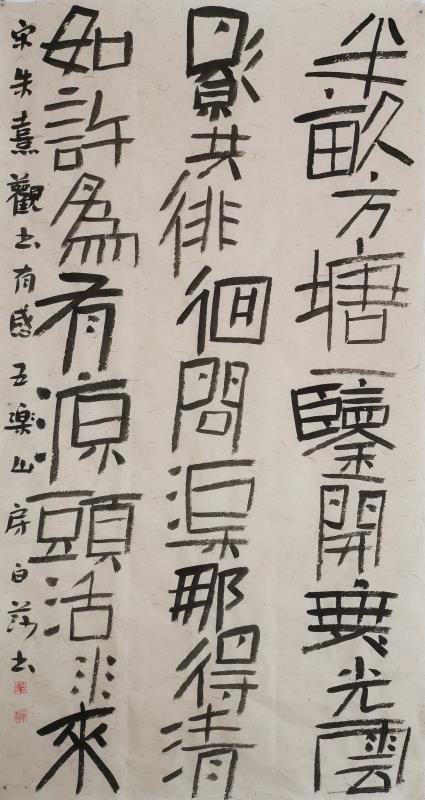 半畝方塘一鑒開光雲
影共徘徊問渠那得清
如許為有源頭活水來
宋朱熹觀书有感五樂山房白书